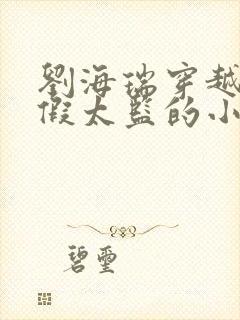 劉海瑞穿越
假太監的小
碧璽